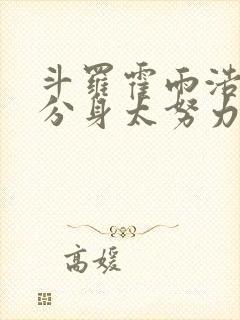 斗羅霍雨浩
分身太努力
高媛